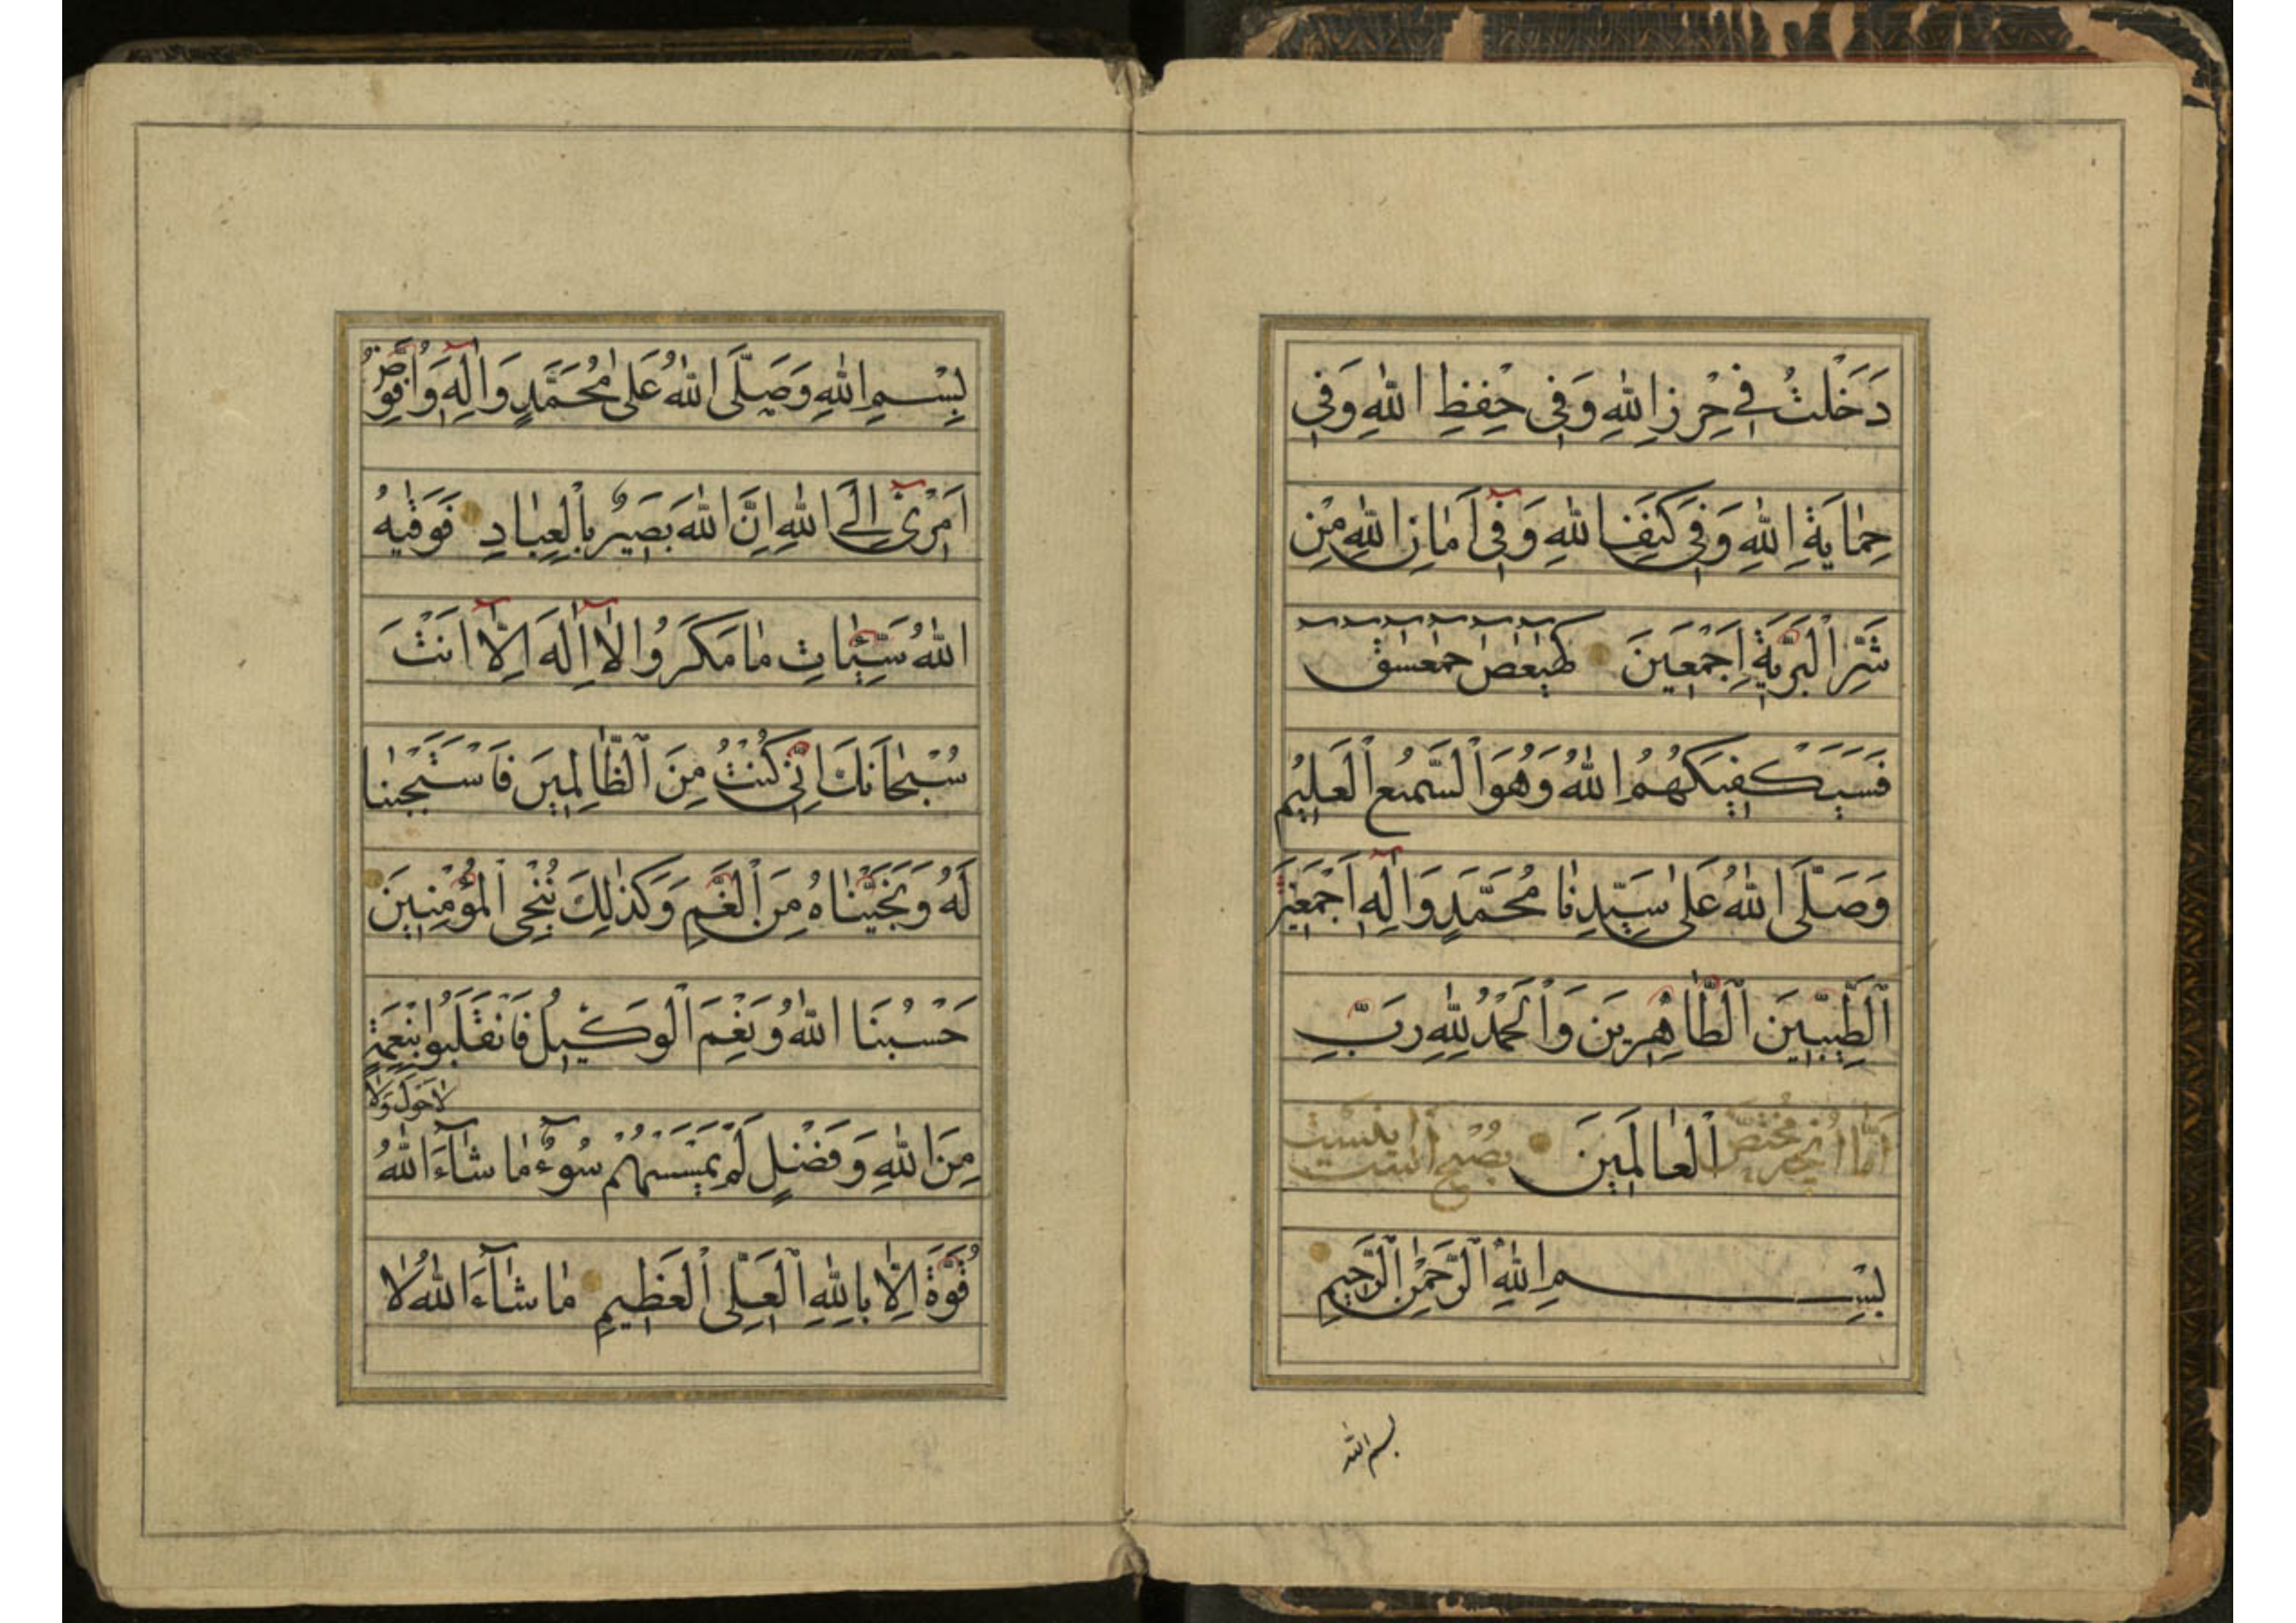 دَخَلْتُ فِي حِرْزِ اللهِ وَفِي حِفْظِ اللهِ وَفِي
حِمَايَةِ اللهِ وَفِي كَنَفِ اللهِ وَفِي اَمَانِ اللهِ مِنْ
شَرِّ الْبَرِيَّةِ اَجْمَعِينَ كهيعص حمعسق
فَسَيَكْفِيكَهُمُ اللهُ وَهُوَ السَّمِيعُ الْعَلِيمُ
وَصَلَّى اللهُ عَلَى سَيِّدِنَا مُحَمَّدٍ وَاٰلِهِ اَجْمَعِينَ
الطَّيِّبِينَ الطَّاهِرِينَ وَالْحَمْدُ لِلّٰهِ رَبِّ
الْعَالَمِينَ
بِسْمِ اللهِ الرَّحْمٰنِ الرَّحِيمِ
بسم الله
بِسْمِ اللهِ وَصَلَّى اللهُ عَلَى مُحَمَّدٍ وَاٰلِهِ وَاُفَوِّضُ
اَمْرِي اِلَى اللهِ اِنَّ اللهَ بَصِيرٌ بِالْعِبَادِ فَوَقٰيهُ
اللهُ سَيِّئَاتِ مَا مَكَرُوا لَا اِلَهَ اِلَّا اَنْتَ
سُبْحَانَكَ اِنِّي كُنْتُ مِنَ الظَّالِمِينَ فَاسْتَجَبْنَا
لَهُ وَنَجَّيْنَاهُ مِنَ الْغَمِّ وَكَذٰلِكَ نُنْجِي الْمُؤْمِنِينَ
حَسْبُنَا اللهُ وَنِعْمَ الْوَكِيلُ فَانْقَلَبُوا بِنِعْمَةٍ
مِنَ اللهِ وَفَضْلٍ لَمْ يَمْسَسْهُمْ سُوءٌ مَا شَاءَ اللهُ
لَا حَوْلَ وَلَا
قُوَّةَ اِلَّا بِاللهِ الْعَلِيِّ الْعَظِيمِ مَا شَاءَ اللهُ لَا